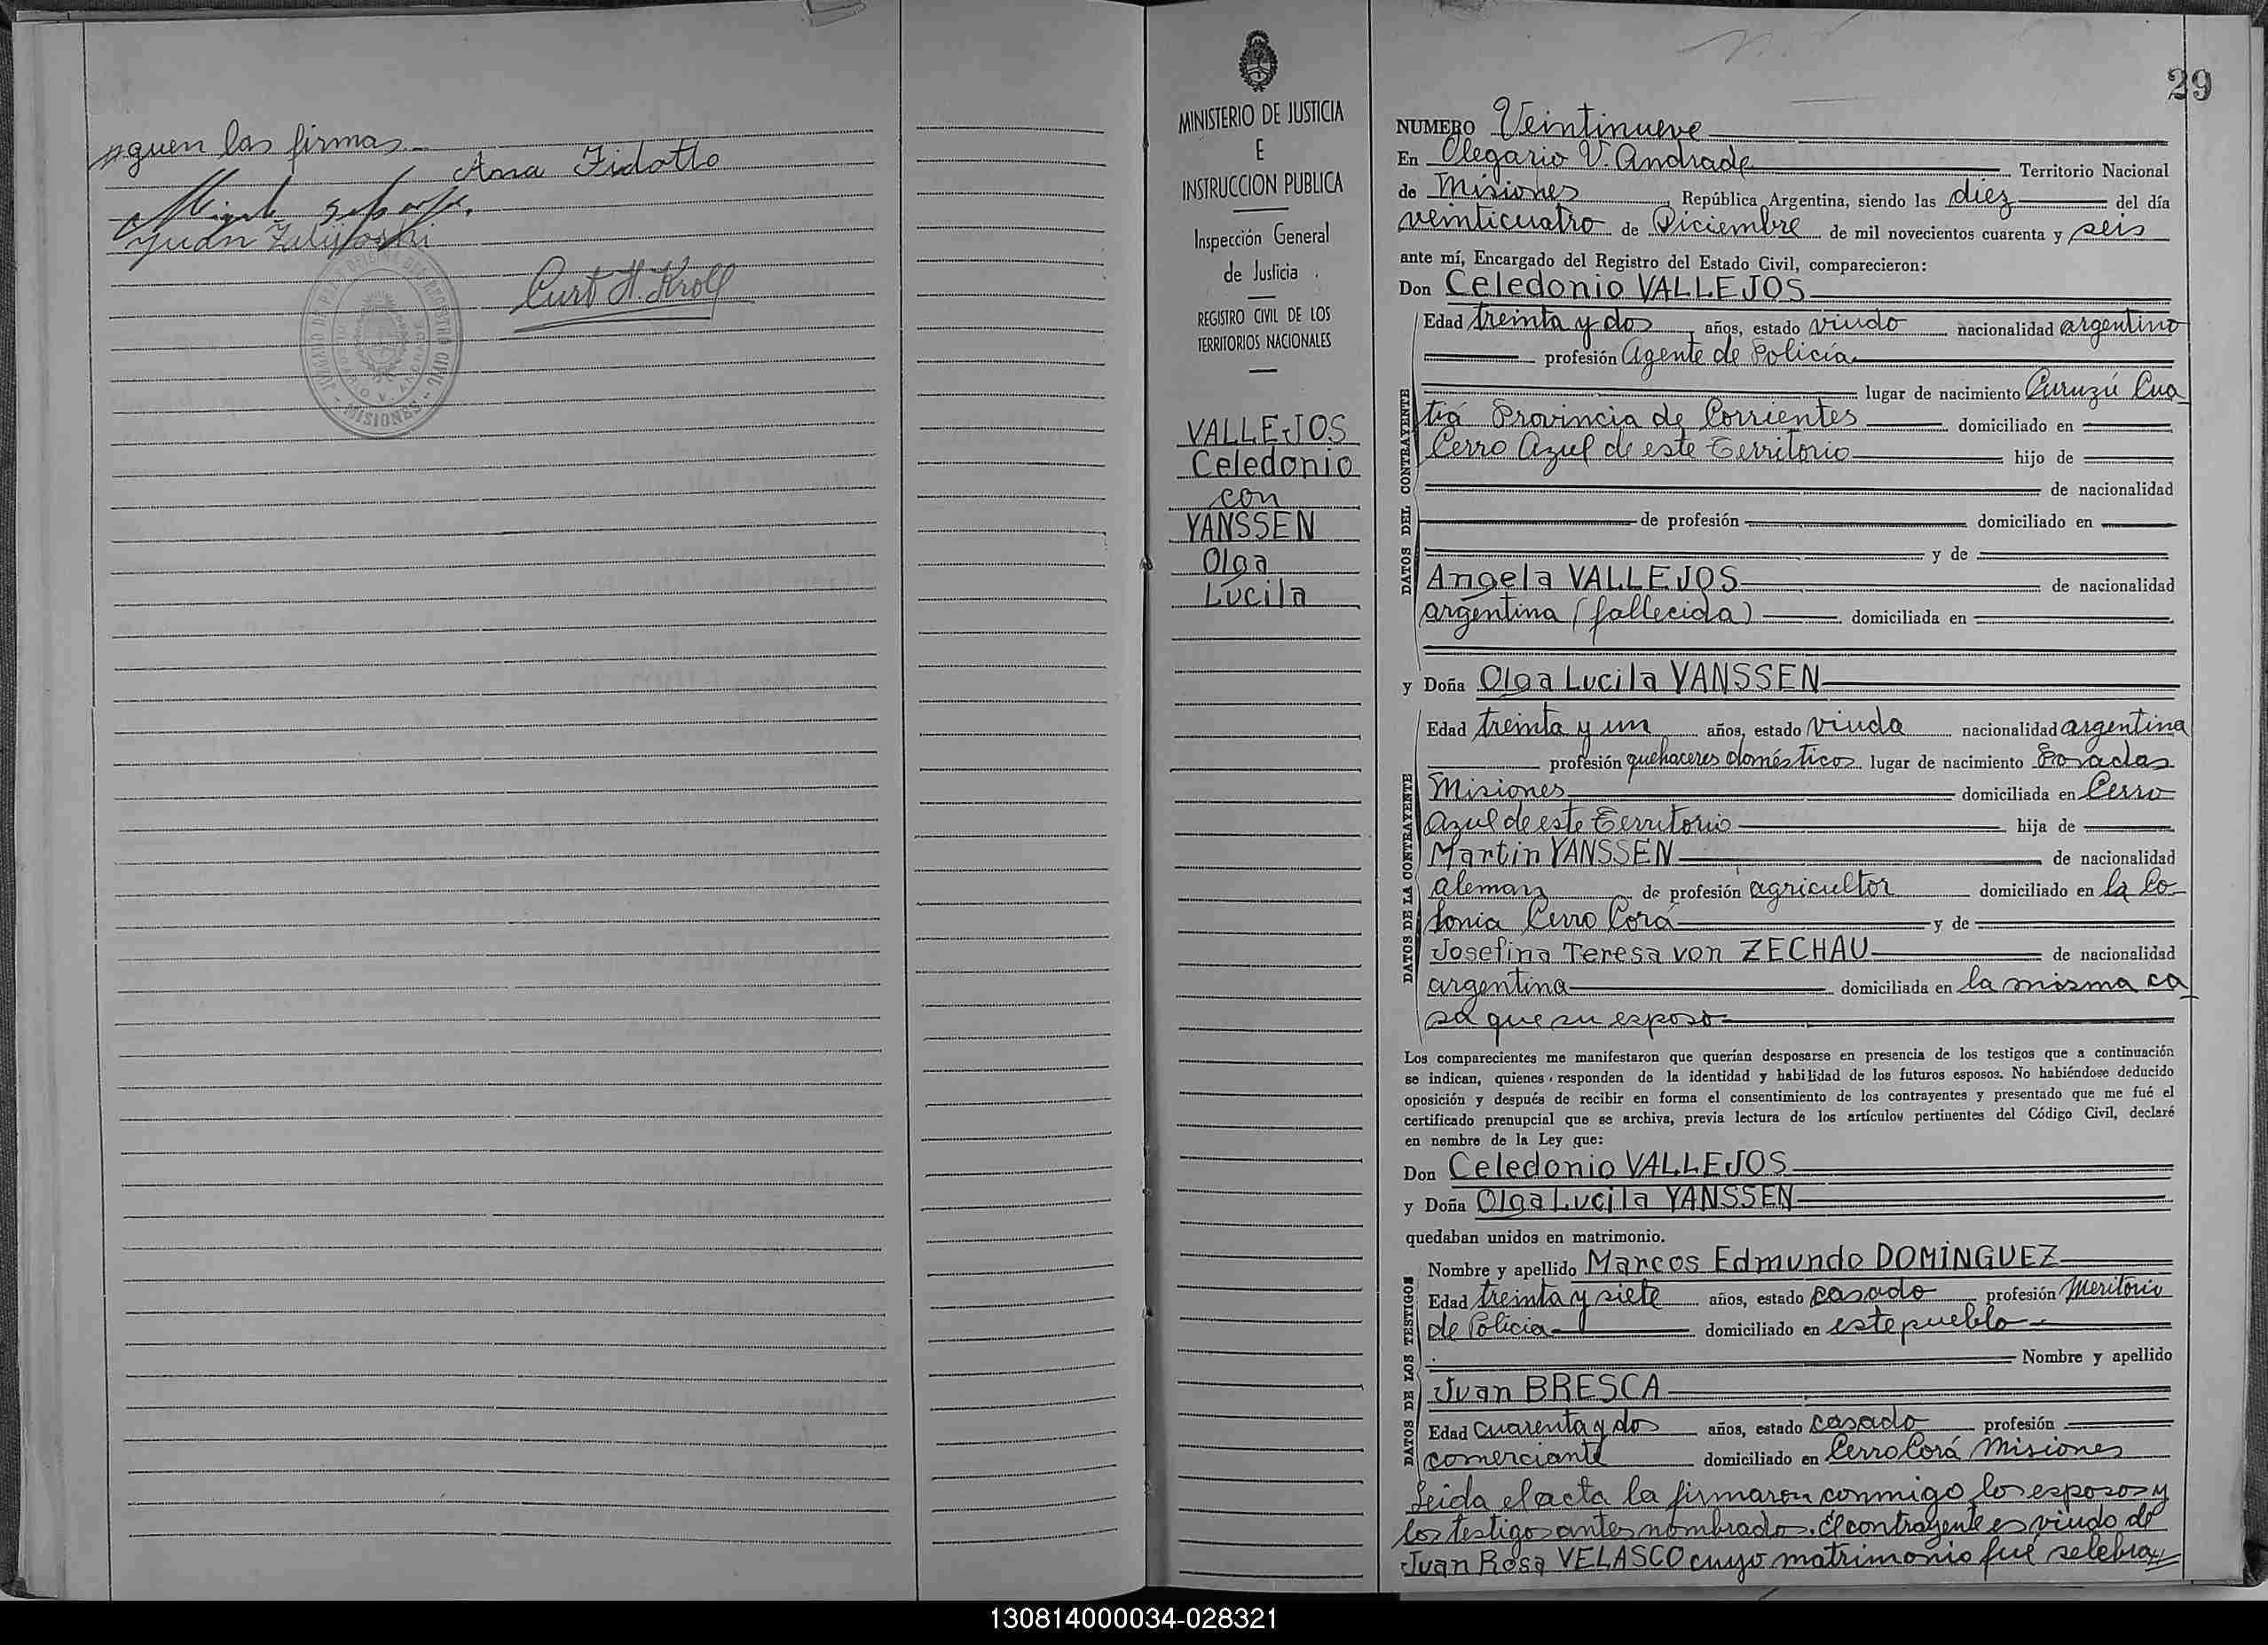 siguen las firmas.-
Ana Fidotto
Juan
Curt H. Kroll
JUZGADO DE PAZ OFICINA DEL REGISTRO CIVIL
- MISIONES -
MINISTERIO DE JUSTICIA
E
INSTRUCCION PUBLICA
Inspección General
de Justicia
REGISTRO CIVIL DE LOS
TERRITORIOS NACIONALES
VALLEJOS
Celedonio
con
YANSSEN
Olga
Lucila
29
NUMERO Veintinueve
En Olegario V. Andrade Territorio Nacional
de Misiones, República Argentina, siendo las diez del día
veinticuatro de Diciembre de mil novecientos cuarenta y seis
ante mí, Encargado del Registro del Estado Civil, comparecieron:
Don Celedonio VALLEJOS
DATOS DEL CONTRAYENTE
Edad treinta y dos, años, estado viudo nacionalidad argentino
profesión Agente de Policía
lugar de nacimiento Curuzú Cua
tiá Provincia de Corrientes domiciliado en
Cerro Azul de este Territorio hijo de
de nacionalidad
de profesión domiciliado en
y de
Angela VALLEJOS de nacionalidad
argentina (fallecida) domiciliada en
y Doña Olga Lucila YANSSEN
DATOS DE LA CONTRAYENTE
Edad treinta y un años, estado viuda nacionalidad argentina
profesión quehaceres domésticos lugar de nacimiento Posadas
Misiones domiciliada en Cerro
Azul de este Territorio hija de
Martin YANSSEN de nacionalidad
aleman de profesión agricultor domiciliado en la Co-
lonia Cerro Corá y de
Josefina Teresa von ZECHAU de nacionalidad
argentina domiciliada en la misma ca
sa que su esposo
Los comparecientes me manifestaron que querían desposarse en presencia de los testigos que a continuación
se indican, quienes responden de la identidad y habilidad de los futuros esposos. No habiéndose deducido
oposición y después de recibir en forma el consentimiento de los contrayentes y presentado que me fué el
certificado prenupcial que se archiva, previa lectura de los artículos pertinentes del Código Civil, declaré
en nombre de la Ley que:
Don Celedonio VALLEJOS
y Doña Olga Lucila YANSSEN
quedaban unidos en matrimonio.
DATOS DE LOS TESTIGOS
Nombre y apellido Marcos Edmundo DOMÍNGUEZ
Edad treinta y siete años, estado casado profesión Meritorio
de Policia domiciliado en este pueblo
Nombre y apellido
Juan BRESCA
Edad cuarenta y dos años, estado casado profesión
comerciante domiciliado en Cerro Corá Misiones
Leida el acta la firmaron conmigo los esposos y
los testigos antes nombrados. El contrayente es viudo de
Juan Rosa VELASCO cuyo matrimonio fué selebra
130814000034-028321